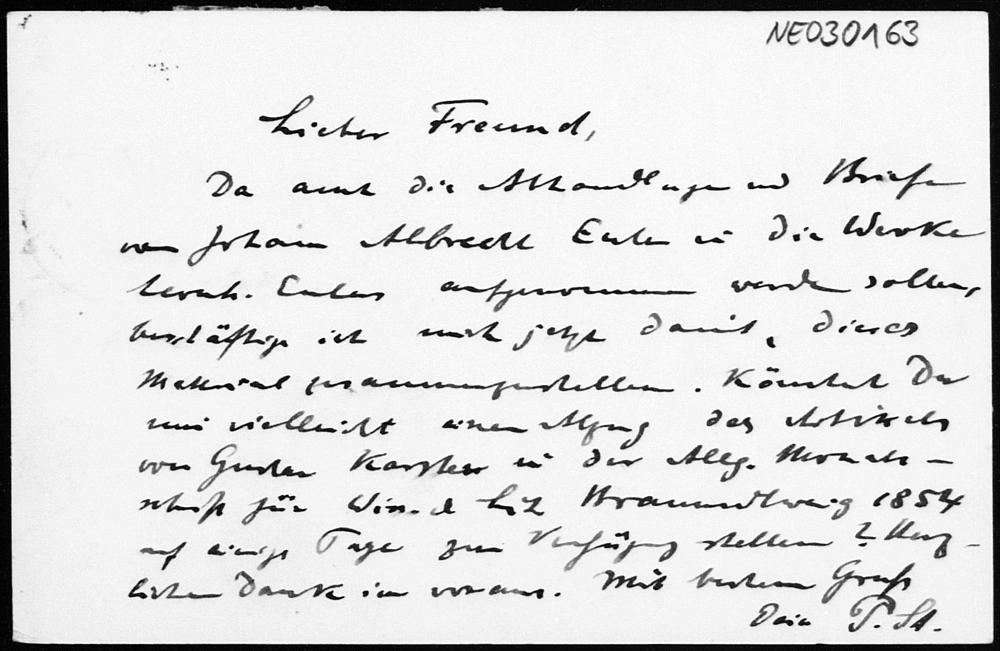 NE030163
Lieber Freund,
Da auch die Abhandlungen und Briefe
von Johann Albrecht Euler in die Werke
Leonh. Eulers aufgenommen werden sollen,
beschäftige ich mich jetzt damit, dieses
Material zusammenzustellen. Könntest Du
mir vielleicht einen Abzug des Artikels
von Gustav Karsten in der Allg. Monats-
schrift für Wiss. & Lit Braunschweig 1854
auf einige Tage zur Verfügung stellen? Herz-
lichen Dank im voraus. Mit bestem Gruss
Dein P. St.